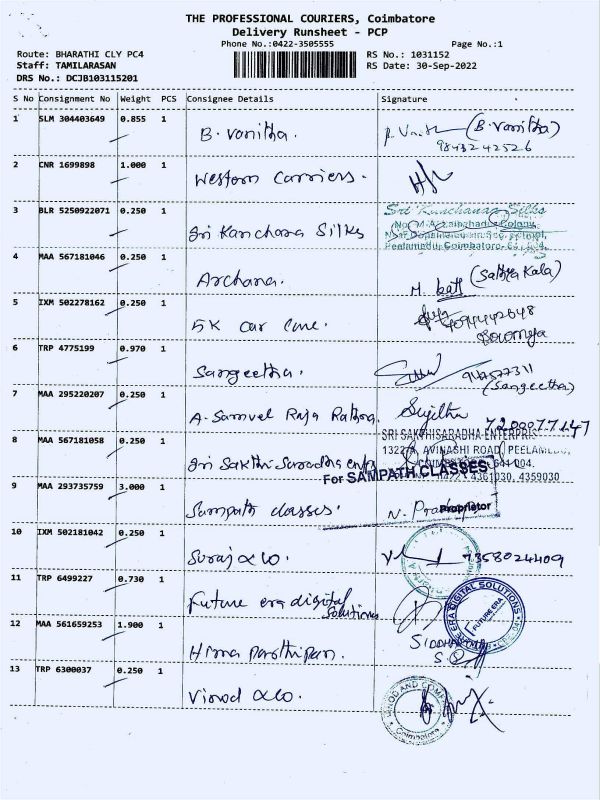 THE PROFESSIONAL COURIERS, Coimbatore
Delivery Runsheet - PCP
Phone No.:0422-3505555 Page No.:1
Route: BHARATHI CLY PC4 RS No.: 1031152
Staff: TAMILARASAN RS Date: 30-Sep-2022
DRS No.: DCJB103115201
S No Consignment No Weight PCS Consignee Details Signature
1 SLM 304403649 0.855 1 B. Vanitha. (B. Vanitha)
9843242526
2 CNR 1699898 1.000 1 Western Carriers.
3 BLR 5250922071 0.250 1 Sri Kanchana Silks Sri Kanchana Silks
Peelamedu, Coimbatore
4 MAA 567181046 0.250 1 Archana. (Sathya Kala)
5 IXM 502278162 0.250 1 5K Car Care.
Sowmya
6 TRP 4775199 0.970 1 Sangeetha.
(Sangeetha)
7 MAA 295220207 0.250 1 A. Samuel Raja Rathna. Sujitha
SRI SAKTHISARADHA ENTERPRIS
AVINASHI ROAD, PEELAMEDU,
8 MAA 567181058 0.250 1 Sri Sakthi Saradha
0422 4361030, 4359030
For SAMPATH CLASSES
9 MAA 293735759 3.000 1 Sampath classes. N.
Proprietor
10 IXM 502181042 0.250 1 Suraj & Co. 7358024409
11 TRP 6499227 0.730 1 Future era digital Solutions ERA DIGITAL SOLUTIONS
FUTURE ERA
12 MAA 561659253 1.900 1 Hima
13 TRP 6300037 0.250 1 Vinod & Co. VINOD AND COMPANY
Coimbatore